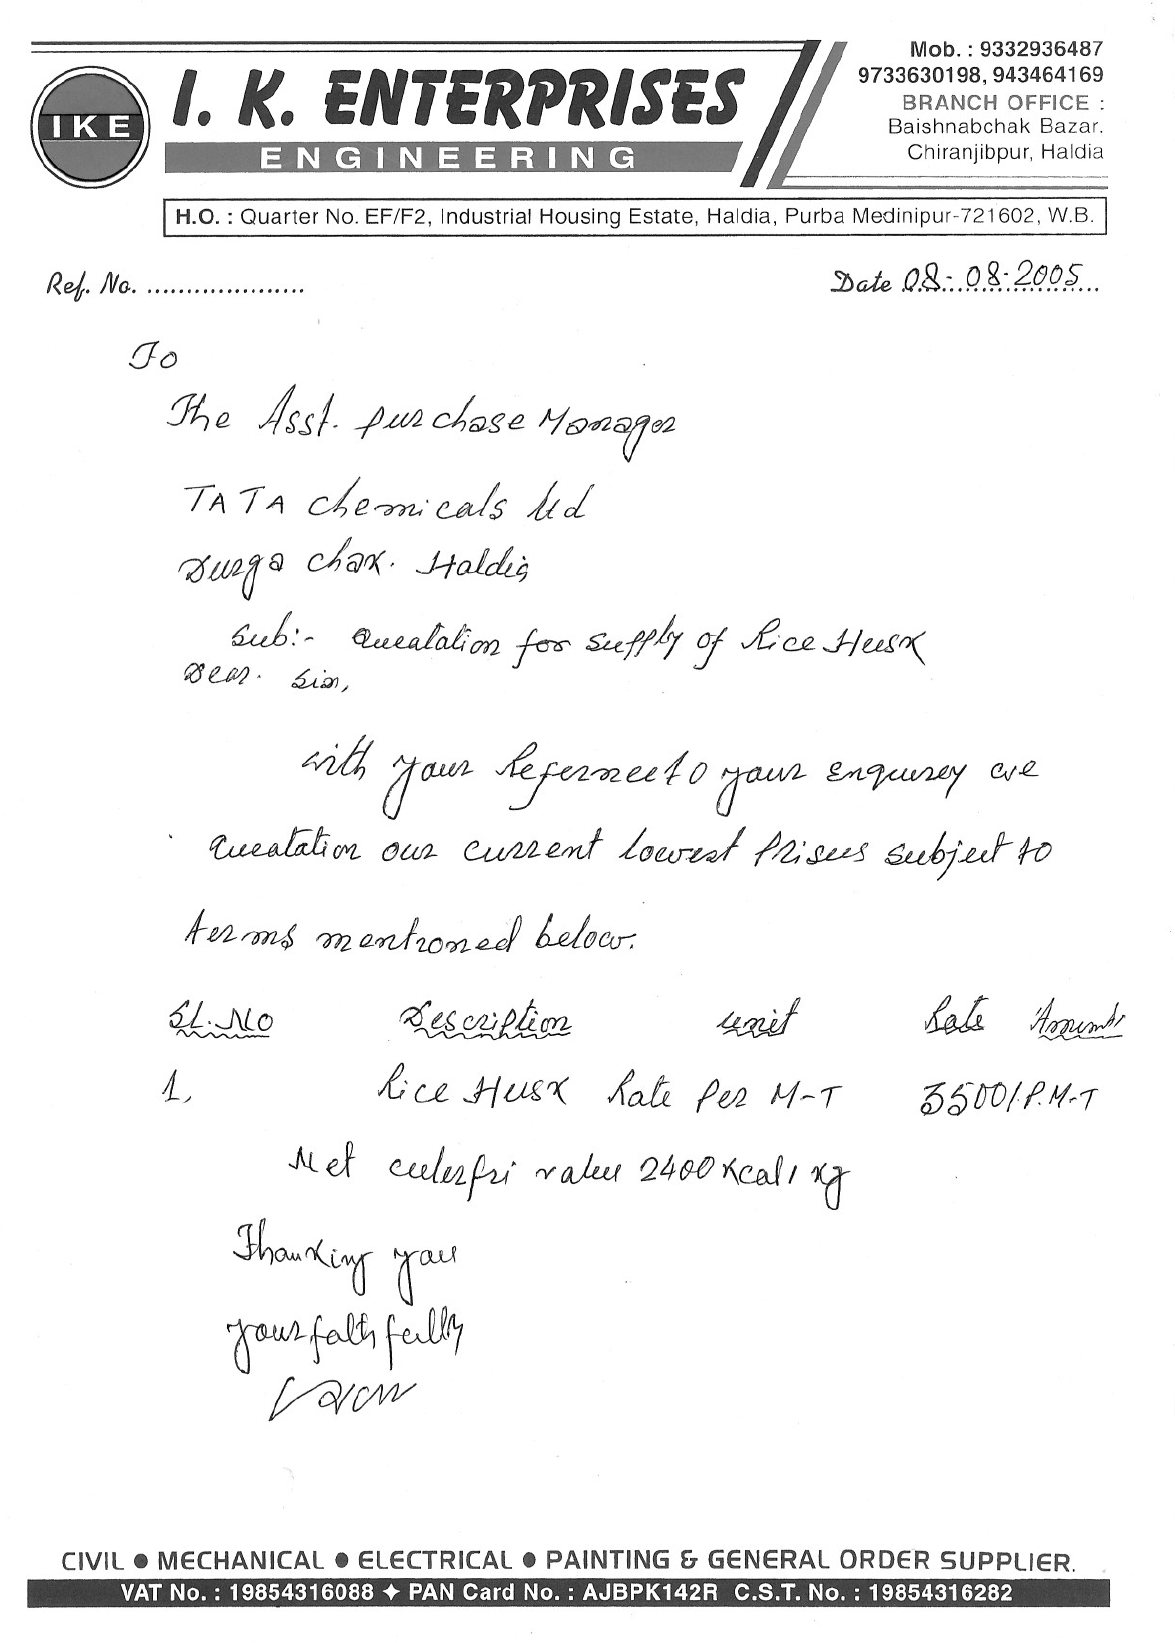 Mob. : 9332936487
9733630198, 943464169
BRANCH OFFICE :
Baishnabchak Bazar.
Chiranjibpur, Haldia
IKE
I. K. ENTERPRISES
ENGINEERING
H.O. : Quarter No. EF/F2, Industrial Housing Estate, Haldia, Purba Medinipur-721602, W.B.
Ref. No. ....................
Date 08-08-2005
To
The Asst. purchase Manager
TATA chemicals Ltd
Durga chak. Haldia
Sub:- Queatation for supply of Rice Husk
Dear. Sir,
with your Referneeto your enquirey we
Queatation our current lowest Prises subject to
terms mentioned below.
SL.NO Description unit Rate Amount
1, Rice Husk Rate Per M-T 3500/.P.M-T
Net value 2400 Kcal/kg
Thanking you
your faithfully
CIVIL ● MECHANICAL ● ELECTRICAL ● PAINTING & GENERAL ORDER SUPPLIER.
VAT No. : 19854316088 ✦ PAN Card No. : AJBPK142R C.S.T. No. : 19854316282